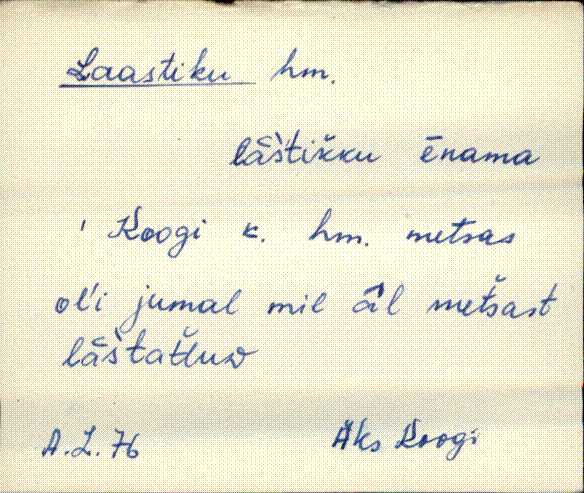 Laastiku hm.
lās̀tik̆ku ēnama
' Koogi k. hm. metsas
ol'i jumal mil āl metšast
lāštatŭuɒ
A.L.76 Äks Koogi